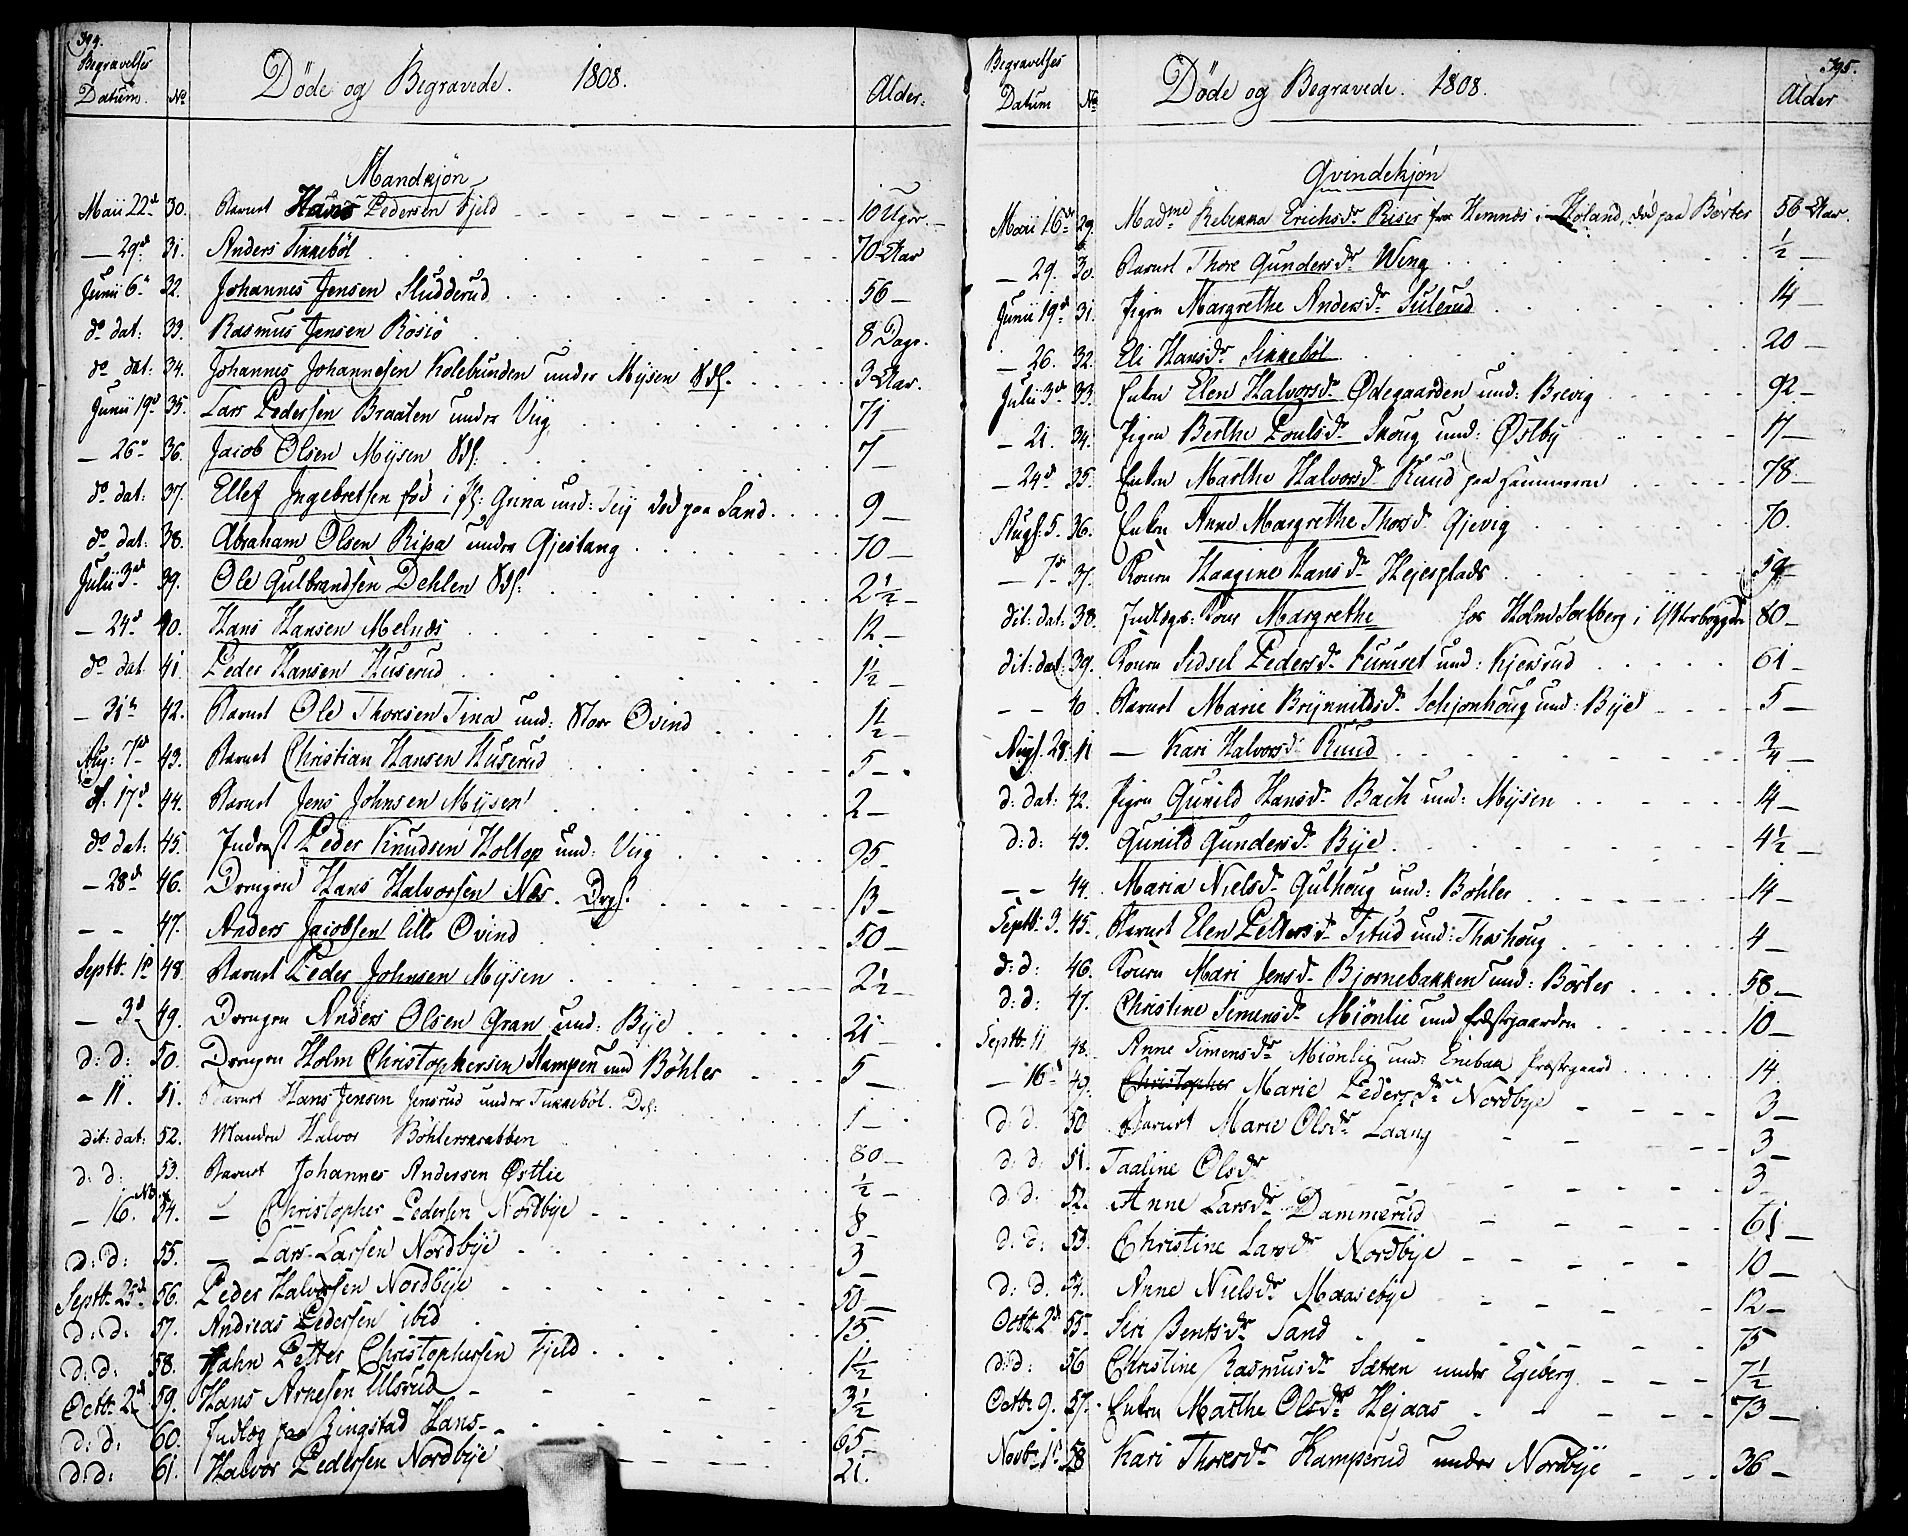 394.
Begravelses Datum. No Döde og Begravede. 1808. Alder.
Mandkjön
Maii 22de 30. Barnet Hans Pedersen Fjeld 10 Uger.
— 29de 31. Anders Tinneböl 70 Aar
Junii 6te 32. Johannes Jensen Sludderud 56 —
do dat: 33. Rasmus Jensen Rosiö 8 Dage.
do dat: 34. Johannes Johannesen Kolebunden under Mysen 3 Aar.
Junii 19de 35. Lars Pedersen Braaten under Viig 71
— 26de 36. Jacob Olsen Mysen 7 —
do dat: 37. Ellef Ingebretsen fød i Grina und: død paa Sand 9 —
do dat: 38. Abraham Olsen Ripa under Gjeslang 70 —
Julii 3de 39. Ole Gulbrandsen Dehlen 2½ —
— 24de 40. Hans Hansen Melnæs 12 —
do dat 41. Peder Hansen Huserud 1½ —
— 31te 42. Barnet Ole Thoresen Tina und: Store Ovind 1½ —
Aug: 7de 43. Barnet Christian Hansen Huserud 5 —
17de 44. Barnet Jens Johnsen Mysen 2 —
do dat: 45. Inderst Peder Knudsen Holtop und: Viig 95 —
— 28de 46. Drengen Hans Halvorsen Næs. 13 —
— — 47. Anders Jacobsen lille Ovind 50 —
Septb. 1te 48. Barnet Peder Johnsen Mysen 2½ —
— 3de 49. Drengen Anders Olsen Gran und: Bye 21 —
d: d: 50. Drengen Holm Christophersen Stampen und Böhler 5 —
— 11. 51. Barnet Hans Jensen Jensrud under Tukkeböl. 1 —
dit: dat: 52. Manden Halvor 80 —
d: d: 53. Barnet Johannes Andersen Østlie ½ —
— 16. 54. — Christopher Pedersen Nordbye 8 —
d: d: 55. — Lars Larsen Nordbye 3 —
Septb. 25de 56. Peder Halvorsen Nordbye 50 —
d: d: 57. Andreas Pedersen ibid 15.
d: d: 58. Petter Christophersen Fjeld 1½
Octb. 2de 59. Hans Arnesen Ulsrud 3½
d: d: 60. Indlæg paa Ringstad Hans 65 —
d: d: 61. Halvor Pedersen Nordbye 21.
395.
Begravelses Datum No Döde og Begravede. 1808. Alder
Qvindekjön
Maii 16de 29. Madme Rebekka Erichsdr Riser fra Hemnæs i Höland, död paa Börter 56 Aar.
— 29. 30. Barnet Thore Gundersdr Wing ½ —
Junii 19de 31. Pigen Margrethe Andersdr Sulerud 14 —
— 26. 32. Eli Hansdr Sinneböl 20 —
Julii 3de 33. Enken Elen Halvorsdr Ødegaarden und: Brevig 92 —
— 21. 34. Pigen Berthe Poulsdr Skoug und: Østby 17 —
— 24de 35. Enken Marthe Halvorsdr Ruud paa Hammeren 78 —
Augs. 5. 36. Enken Anne Margrethe Thorsdr Gjevig 70.
— 7de 37. Konen Haagine Hansdr Hejesplads 59 —
dit: dat: 38. Indlægs: Kone Margrethe hos Holm Solberg i Ytterbygden 80 —
dit: dat: 39. Konen Sidsel Pedersdr Furuset und: Kjersrud 61 —
— — 40. Barnet Marie Brynnildsdr Schjonhoug und: Bye 5 —
Augs. 28: 41 — Kari Halvorsdr Ruud ¾ —
d: dat: 42. Pigen Gunild Hansdr Bach und: Mysen 14 —
d: d: 43. Gunild Gundersdr Bye 4½ —
— — 44. Maria Nielsdr Gulhoug und: Bøhler 14 —
Septb: 3. 45. Barnet Elen Pettersdr Titud und: Thoshoug 4 —
d: d: 46. Konen Mari Jensdr Bjornebakken und: Börter 58 —
d: d: 47. Christine Simensdr Miönlie und Præstgaarden 10 —
Septb. 11 48. Anne Simensdr Miönlie und: Enebak Præstgaard 14
— 16de 49. Christopher Marie Pedersdr Nordbye 3 —
d: d: 50 Barnet Marie Olsdr Laang 3 —
d: d: 51. Taaline Olsdr 3
d: d: 52. Anne Larsdr Dammerud 61 —
d: d: 53. Christine Larsdr Nordbye 10 —
d: d. 54. Anne Nielsdr Maasebye 12 —
Octb: 2de 55. Siri Bentsdr Sand 75
d: d: 56 Christine Rasmusdr Sætren under Egeberg 7½
Octb 9. 57. Enken Marthe Olsdr Hejaas 73 —
Novbr 1te 58 Kari Thoresdr Kamperud under Nordbye 36 —